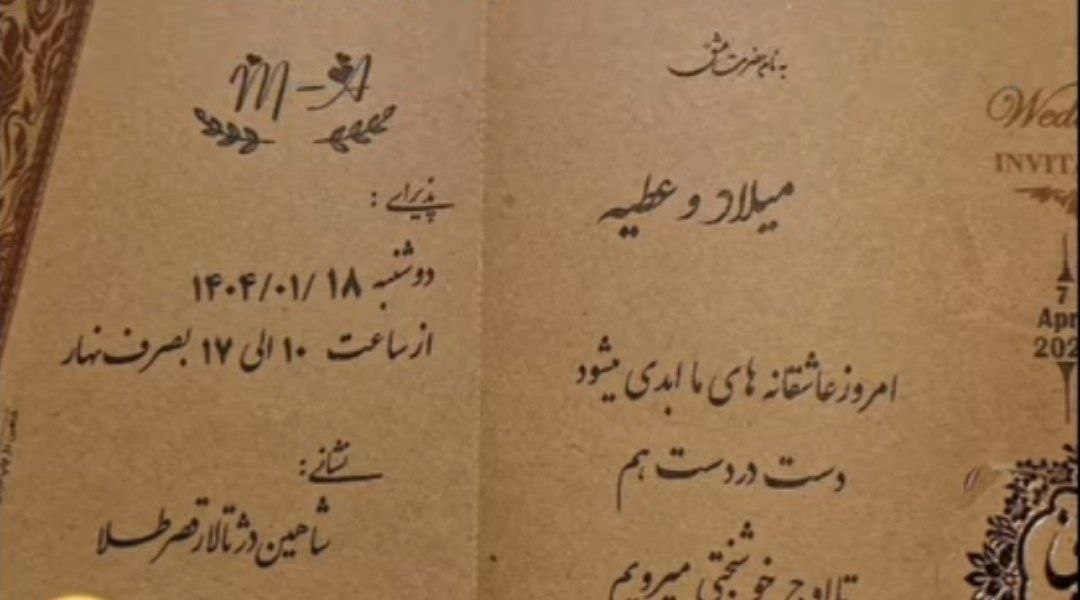 به نام حضرت عشق
میلاد و عطیه
امروز عاشقانه های ما ابدی میشود
دست در دست هم
تا اوج خوشبختی میرویم
M-A
پذیرایی :
دوشنبه ۱۴۰۴/۰۱/۱۸
از ساعت ۱۰ الی ۱۷ بصرف نهار
نشانی :
شاهین دژ تالار قصر طلا
Wed
INVIT
7
Apr
202